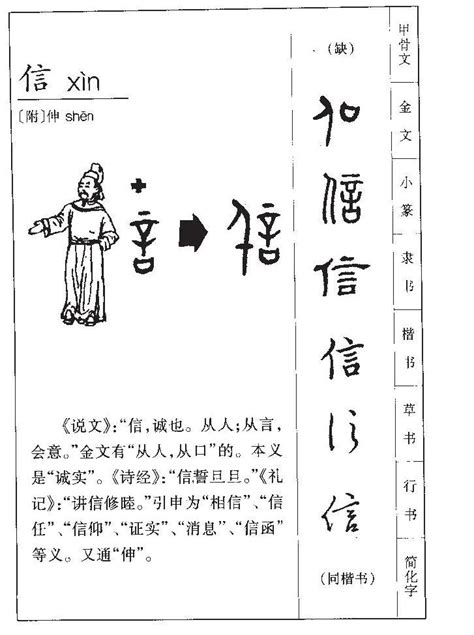 信 xìn
〔附〕伸 shēn
《说文》:“信,诚也。从人;从言,
会意。”金文有“从人,从口”的。本义
是“诚实”。《诗经》:“信誓旦旦。”《礼
记》:“讲信修睦。”引申为“相信”、“信
任”、“信仰”、“证实”、“消息”、“信函”
等义。又通“伸”。
(缺)
信
信
信
信
信
信
(同楷书)
甲骨文
金文
小篆
隶书
楷书
草书
行书
简化字